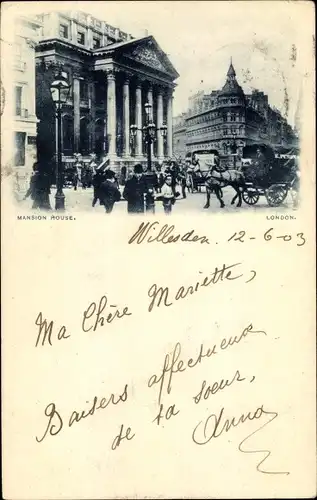 MANSION HOUSE.
LONDON.
Willesden. 12-6-03
Ma Chère Mariette,
Baisers affectueux
de ta soeur,
Anna